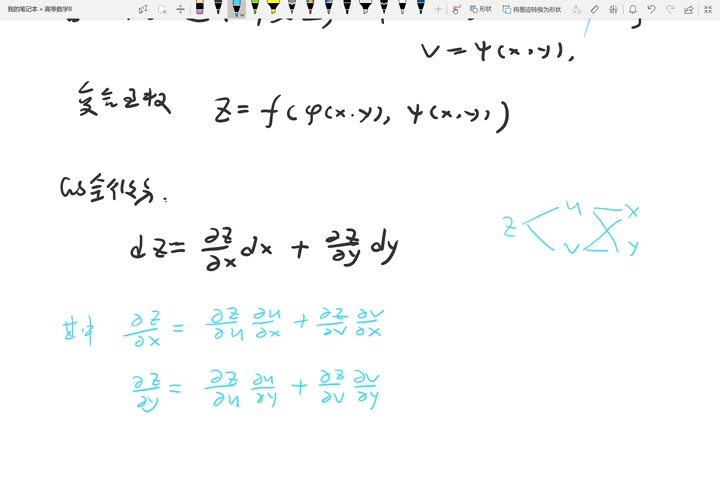 我的笔记本 » 高等数学II
形状
将墨迹转换为形状
v = ψ(x,y),
复合函数 z = f(φ(x,y), ψ(x,y))
的全微分.
dz = ∂z/∂x dx + ∂z/∂y dy
z u v x y
其中 ∂z/∂x = ∂z/∂u ∂u/∂x + ∂z/∂v ∂v/∂x
∂z/∂y = ∂z/∂u ∂u/∂y + ∂z/∂v ∂v/∂y